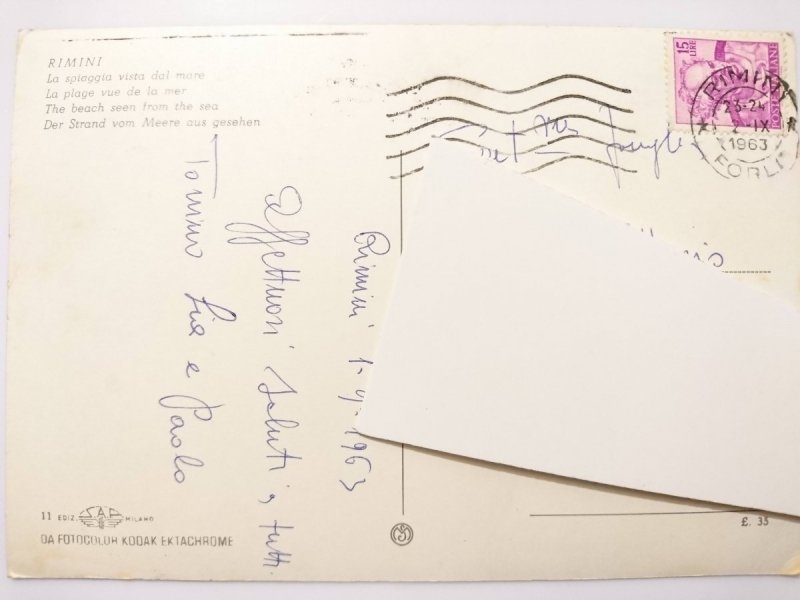 RIMINI
La spiaggia vista dal mare
La plage vue de la mer
The beach seen from the sea
Der Strand vom Meere aus gesehen
15 LIRE
RIMINI
23-24
2-IX
1963
FORLI
Rimini 1-9-1963
Affettuosi saluti a tutti
Tonino Lia e Paolo
11 EDIZ. S.A.F. MILANO
DA FOTOCOLOR KODAK EKTACHROME
£. 35